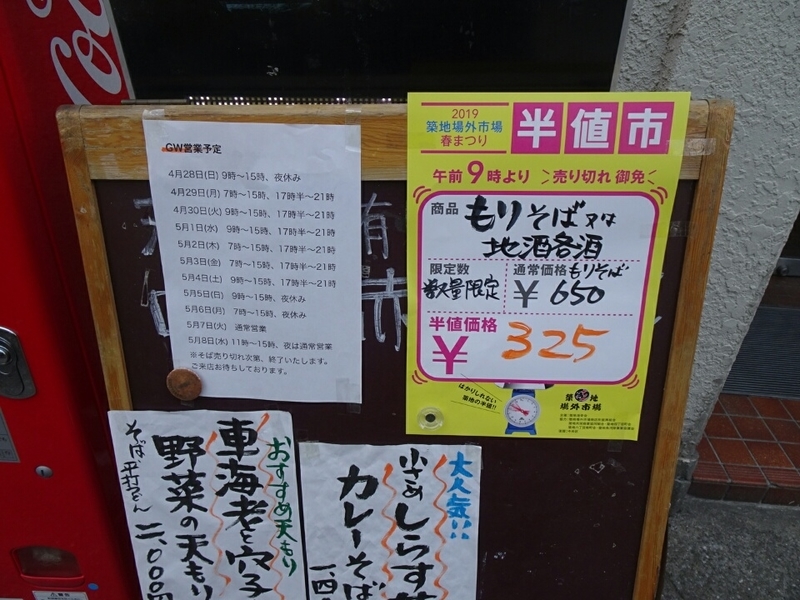 GW営業予定
4月28日(日) 9時～15時、夜休み
4月29日(月) 7時～15時、17時半～21時
4月30日(火) 9時～15時、17時半～21時
5月1日(水) 9時～15時、17時半～21時
5月2日(木) 7時～15時、17時半～21時
5月3日(金) 7時～15時、17時半～21時
5月4日(土) 9時～15時、17時半～21時
5月5日(日) 9時～15時、夜休み
5月6日(月) 7時～15時、夜休み
5月7日(火) 通常営業
5月8日(水) 11時～15時、夜は通常営業
※そば売り切れ次第、終了いたします。
ご来店お待ちしております。
2019
築地場外市場
春まつり
半値市
午前9時より 売り切れ 御免
商品 もりそば 又は
地酒各酒
限定数
数量限定
通常価格 もりそば
¥650
半値価格
¥325
はかりしれない
築地の半値!!
築地
場外市場
おすすめ天もり
車海老と穴子
野菜の天もり
二、000円
大人気!!
しらす
カレーそば